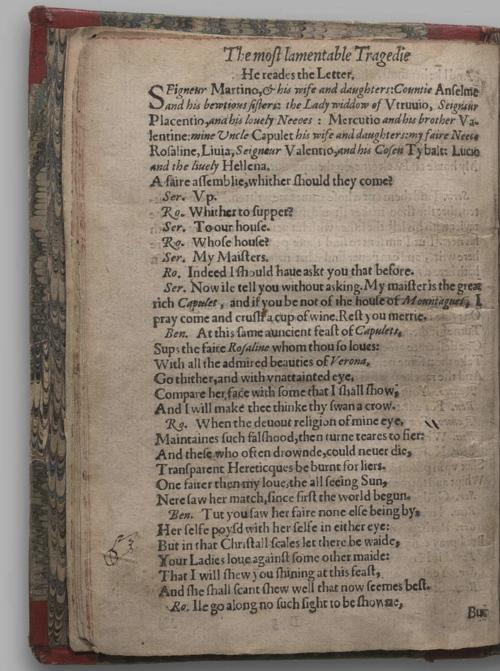 The most lamentable Tragedie
He reades the Letter.
SEigneur Martino, & his wife and daughters: Countie Anselme
and his bewtious sisters: the Lady widdow of Vtruuio, Seigneur
Placentio, and his louely Neeces: Mercutio and his brother Va-
lentine: mine Vncle Capulet his wife and daughters: my faire Neece
Rosaline, Liuia, Seigneur Valentio, and his Cosen Tybalt: Lucio
and the liuely Hellena.
A faire assemblie, whither should they come?
Ser. Vp.
Ro. Whither to supper?
Ser. To our house.
Ro. Whose house?
Ser. My Maisters.
Ro. Indeed I should haue askt you that before.
Ser. Now ile tell you without asking. My maister is the great
rich Capulet, and if you be not of the house of Mountagues, I
pray come and crush a cup of wine. Rest you merrie.
Ben. At this same auncient feast of Capulets,
Sups the faire Rosaline whom thou so loues:
With all the admired beauties of Verona,
Go thither, and with vnattainted eye,
Compare her face with some that I shall show,
And I will make thee thinke thy swan a crow.
Ro. When the deuout religion of mine eye,
Maintaines such falshood, then turne teares to fier:
And these who often drownde, could neuer die,
Transparent Hereticques be burnt for liers.
One fairer then my loue, the all seeing Sun,
Nere saw her match, since first the world begun.
Ben. Tut you saw her faire none else being by,
Her selfe poysd with her selfe in either eye:
But in that Christall scales let there be waide,
Your Ladies loue against some other maide:
That I will shew you shining at this feast,
And she shall scant shew well that now seemes best.
Ro. Ile go along no such sight to be showne,
But